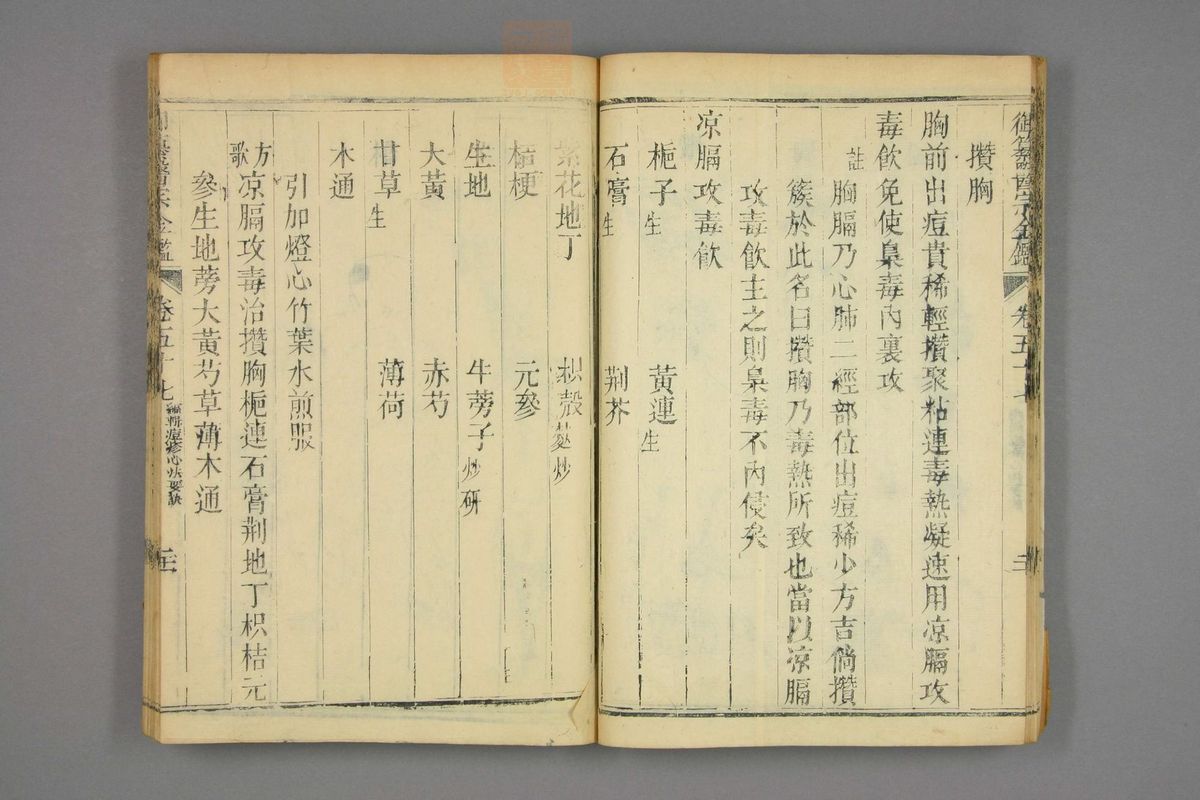 御纂醫宗金鑑 卷五十七 二
攢胸
胸前出痘貴稀輕攢聚粘連毒熱凝速用凉膈攻
毒飲免使梟毒內裏攻
註 胸膈乃心肺二經部位出痘稀少方吉倘攢
簇於此名曰攢胸乃毒熱所致也當以凉膈
攻毒飲主之則梟毒不內侵矣
凉膈攻毒飲
梔子生 黃連生
石膏生 荆芥
紫花地丁 枳殼麩炒
桔梗 元參
生地 牛蒡子炒研
大黃 赤芍
甘草生 薄荷
木通
引加燈心竹葉水煎服
方歌 凉膈攻毒治攢胸梔連石膏荆地丁枳桔元
參生地蒡大黃芍草薄木通
醫宗金鑑 卷五十七 編輯痘疹心法要訣